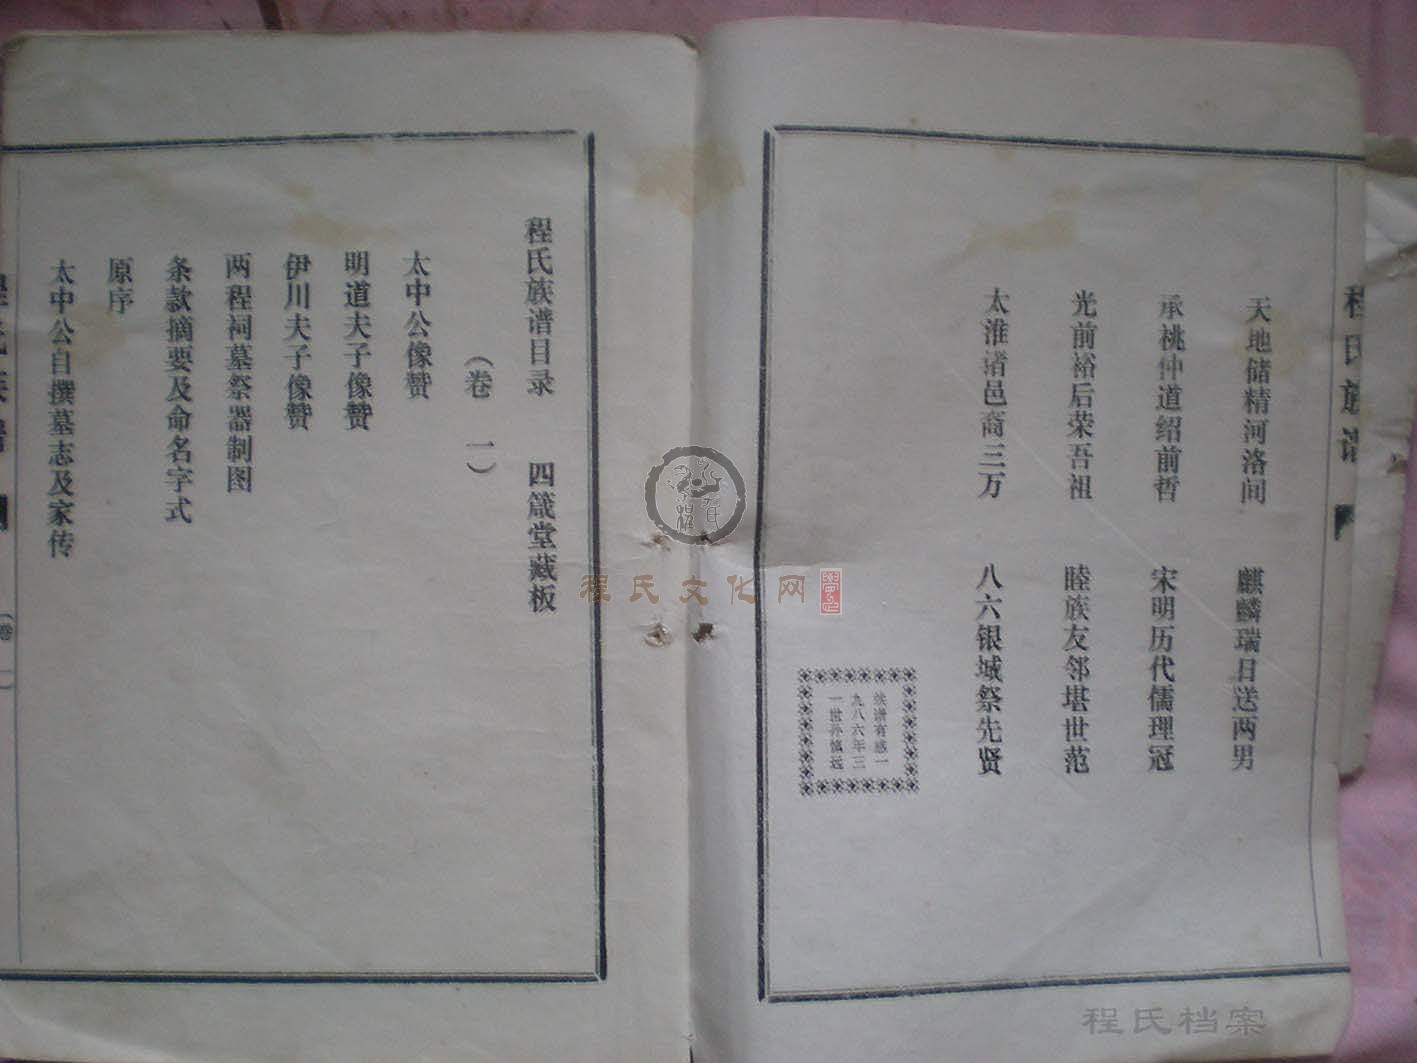 程氏族谱
天地储精河洛间 麒麟瑞日送两男
承祧仲道绍前哲 宋明历代儒理冠
光前裕后荣吾祖 睦族友邻堪世范
太淮诸邑裔三万 八六银城祭先贤
族谱有感一
九八六年三
一世孙慎远
程氏族谱目录 四箴堂藏板
（卷 一）
太中公像赞
明道夫子像赞
伊川夫子像赞
两程祠墓祭器制图
条款摘要及命名字式
原序
太中公自撰墓志及家传
程氏族谱
（卷一）
程氏文化网
程氏档案